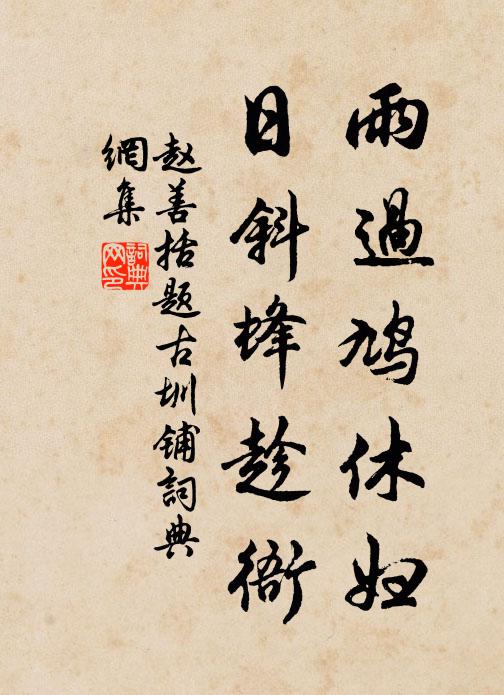 雨過鳩休妇
日斜蜂趁衙
赵善括题古圳铺詞典
網集
詞典
网印